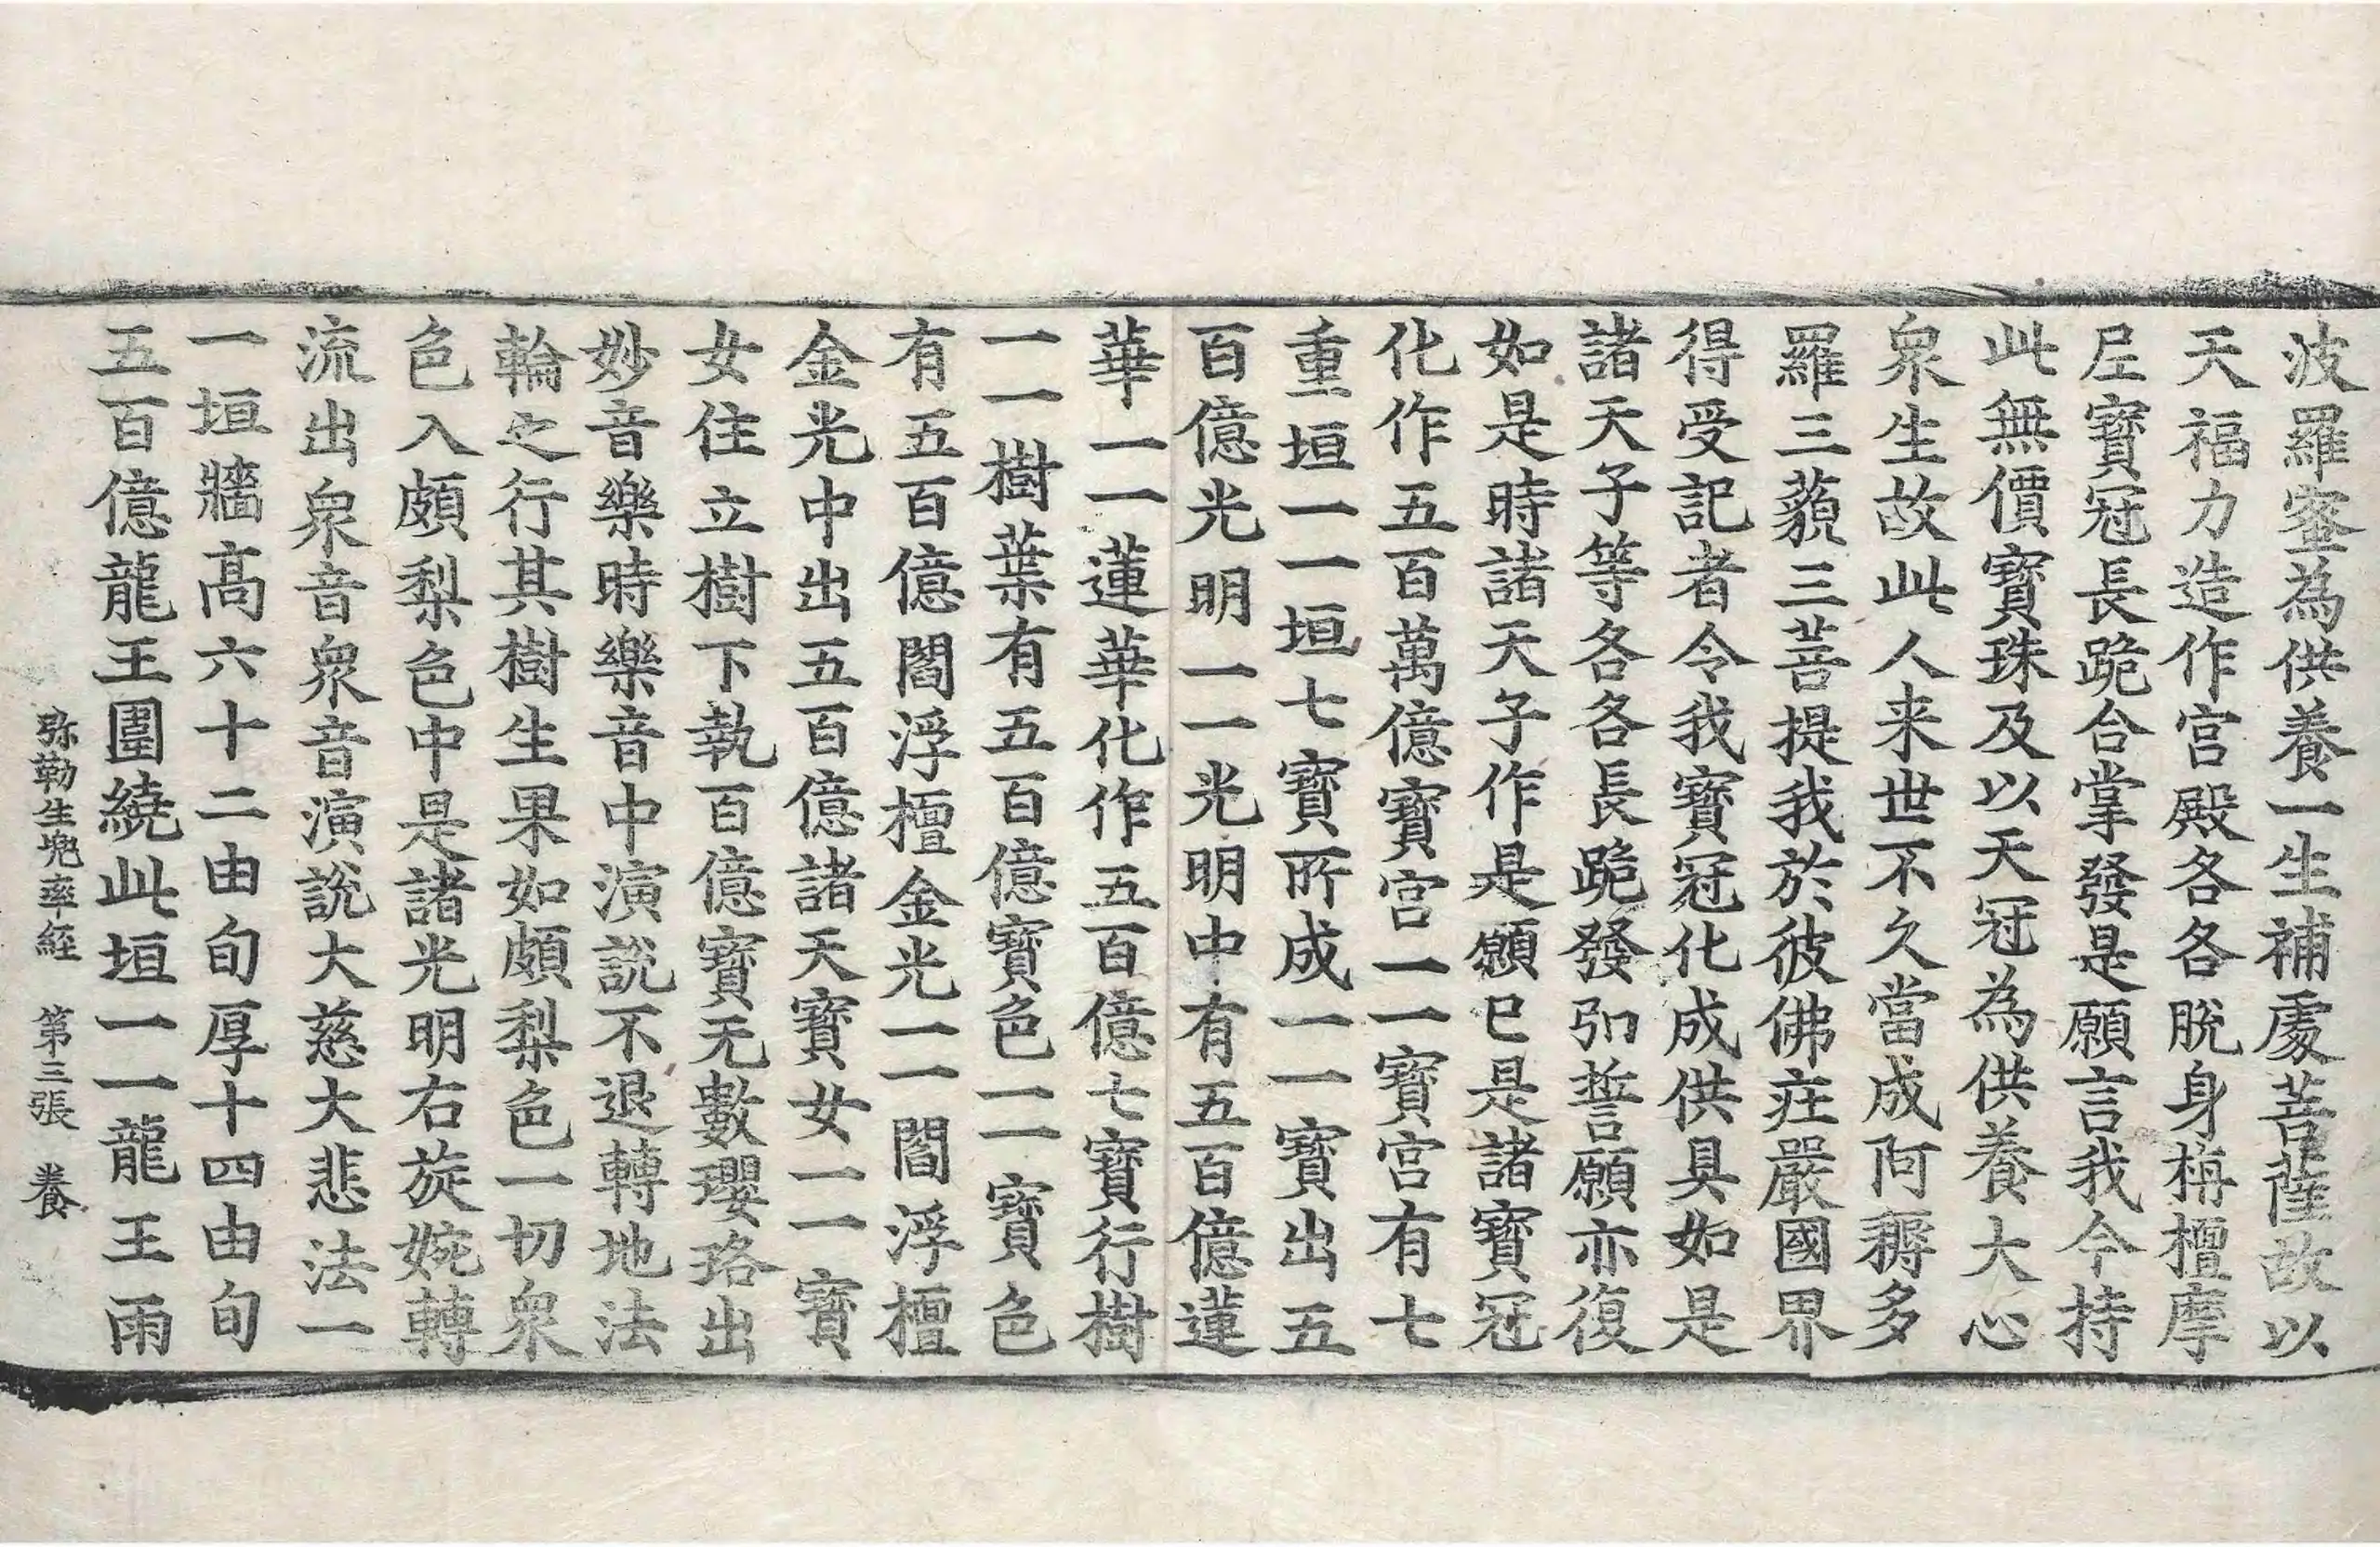 波羅蜜為供養一生補處菩薩故以
天福力造作宮殿各各脫身栴檀摩
尼寶冠長跪合掌發是願言我今持
此無價寶珠及以天冠為供養大心
衆生故此人来世不久當成阿耨多
羅三藐三菩提我於彼佛莊嚴國界
得受記者令我寶冠化成供具如是
諸天子等各各長跪發弘誓願亦復
如是時諸天子作是願已是諸寶冠
化作五百萬億寶宮一一寶宮有七
重垣一一垣七寶所成一一寶出五
百億光明一一光明中有五百億蓮
華一一蓮華化作五百億七寶行樹
一一樹葉有五百億寶色一一寶色
有五百億閻浮檀金光一一閻浮檀
金光中出五百億諸天寶女一一寶
女住立樹下執百億寶无數瓔珞出
妙音樂時樂音中演說不退轉地法
輪之行其樹生果如頗梨色一切衆
色入頗梨色中是諸光明右旋婉轉
流出衆音衆音演說大慈大悲法一
一垣牆高六十二由旬厚十四由旬
五百億龍王圍繞此垣一一龍王雨
弥勒生兜率經　第三張　養